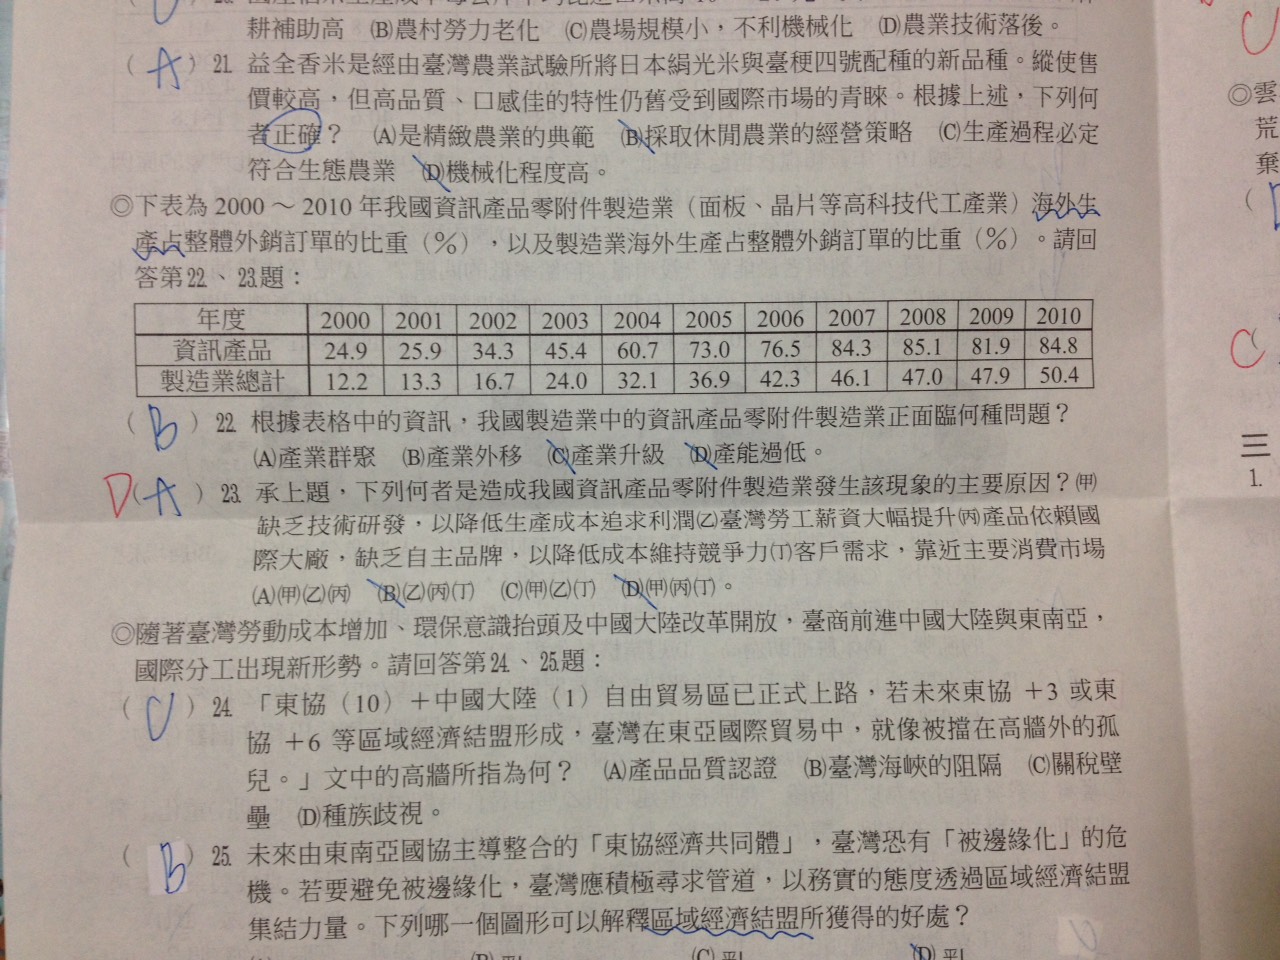 耕補助高 (B)農村勞力老化 (C)農場規模小，不利機械化 (D)農業技術落後。
( A ) 21. 益全香米是經由臺灣農業試驗所將日本絹光米與臺梗四號配種的新品種。縱使售
價較高，但高品質、口感佳的特性仍舊受到國際市場的青睞。根據上述，下列何
者正確？ (A)是精緻農業的典範 (B)採取休閒農業的經營策略 (C)生產過程必定
符合生態農業 (D)機械化程度高。
◎下表為 2000 ～ 2010 年我國資訊產品零附件製造業（面板、晶片等高科技代工產業）海外生
產占整體外銷訂單的比重（％），以及製造業海外生產占整體外銷訂單的比重（％）。請回
答第22、23題：
年度 2000 2001 2002 2003 2004 2005 2006 2007 2008 2009 2010
資訊產品 24.9 25.9 34.3 45.4 60.7 73.0 76.5 84.3 85.1 81.9 84.8
製造業總計 12.2 13.3 16.7 24.0 32.1 36.9 42.3 46.1 47.0 47.9 50.4
( B ) 22. 根據表格中的資訊，我國製造業中的資訊產品零附件製造業正面臨何種問題？
(A)產業群聚 (B)產業外移 (C)產業升級 (D)產能過低。
D ( A ) 23. 承上題，下列何者是造成我國資訊產品零附件製造業發生該現象的主要原因？(甲)
缺乏技術研發，以降低生產成本追求利潤(乙)臺灣勞工薪資大幅提升(丙)產品依賴國
際大廠，缺乏自主品牌，以降低成本維持競爭力(丁)客戶需求，靠近主要消費市場
(A)(甲)(乙)(丙) (B)(乙)(丙)(丁) (C)(甲)(乙)(丁) (D)(甲)(丙)(丁)。
◎隨著臺灣勞動成本增加、環保意識抬頭及中國大陸改革開放，臺商前進中國大陸與東南亞，
國際分工出現新形勢。請回答第24、25題：
( C ) 24. 「東協（10）＋中國大陸（1）自由貿易區已正式上路，若未來東協 ＋3 或東
協 ＋6 等區域經濟結盟形成，臺灣在東亞國際貿易中，就像被擋在高牆外的孤
兒。」文中的高牆所指為何？ (A)產品品質認證 (B)臺灣海峽的阻隔 (C)關稅壁
壘 (D)種族歧視。
( B ) 25. 未來由東南亞國協主導整合的「東協經濟共同體」，臺灣恐有「被邊緣化」的危
機。若要避免被邊緣化，臺灣應積極尋求管道，以務實的態度透過區域經濟結盟
集結力量。下列哪一個圖形可以解釋區域經濟結盟所獲得的好處？
C
◎雲
荒
棄
(
C (
三
1.